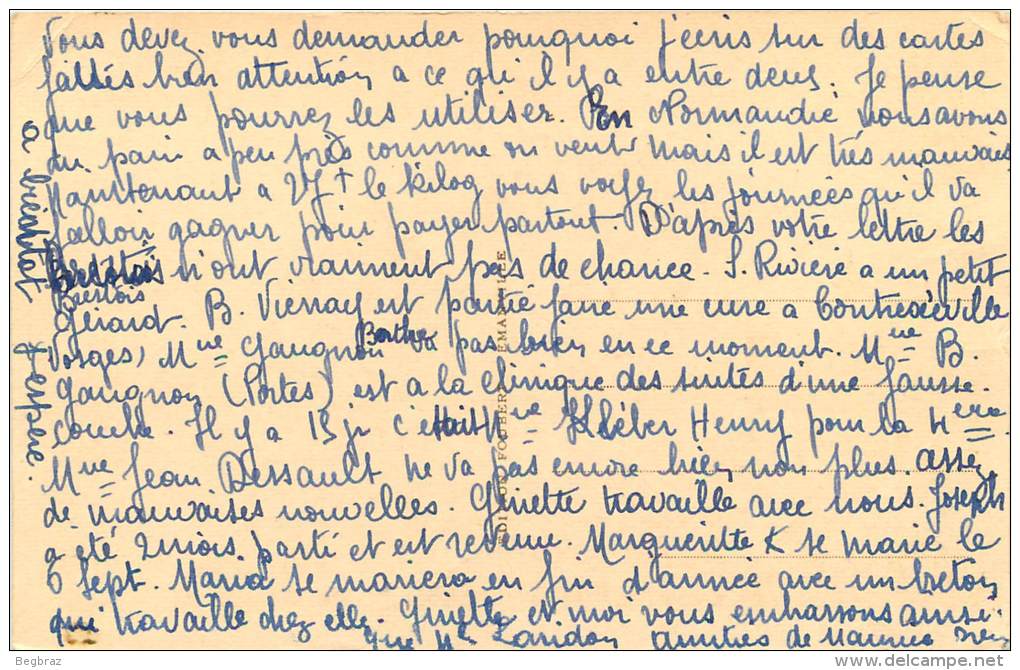 Vous devez vous demander pourquoi j'ecris sur des cartes
faites bien attention a ce qu'il y a entre deus, Je pense
que vous pourrez les utiliser. En Normandie nous avons
du pain a peu près comme on veut mais il est très mauvais
Maintenant a le kilog vous voyez les journées qu'il va
falloir gagner pour payer partout. D'après votre lettre les
n'ont vraiment pas de chance. S. Rivière a un petit
Gérard. B. est partie faire une cure a Contrexéville
Vosges, Mme Gaugnon Berthe va pas bien en ce moment. Mme B.
Gaugnon (Portes) est a la clinique des suites d'une fausse
couche. Il y a 15 j. c'etait Mme Kléber Henry pour la
Mme Jean Dessault ne va pas encore bien non plus. assez
de mauvaises nouvelles. Ginette travaille avec nous. Joseph
a été 2 mois parti et est revenu. Margueritte K se marie le
6 Sept. Maria se mariera en fin d'année avec un breton
qui travaille chez elle. Ginette et moi vous embrassons ainsi
que Mr Landon amitiés de Maurice
a bientot j'espère.
Begbraz
delcampe.net